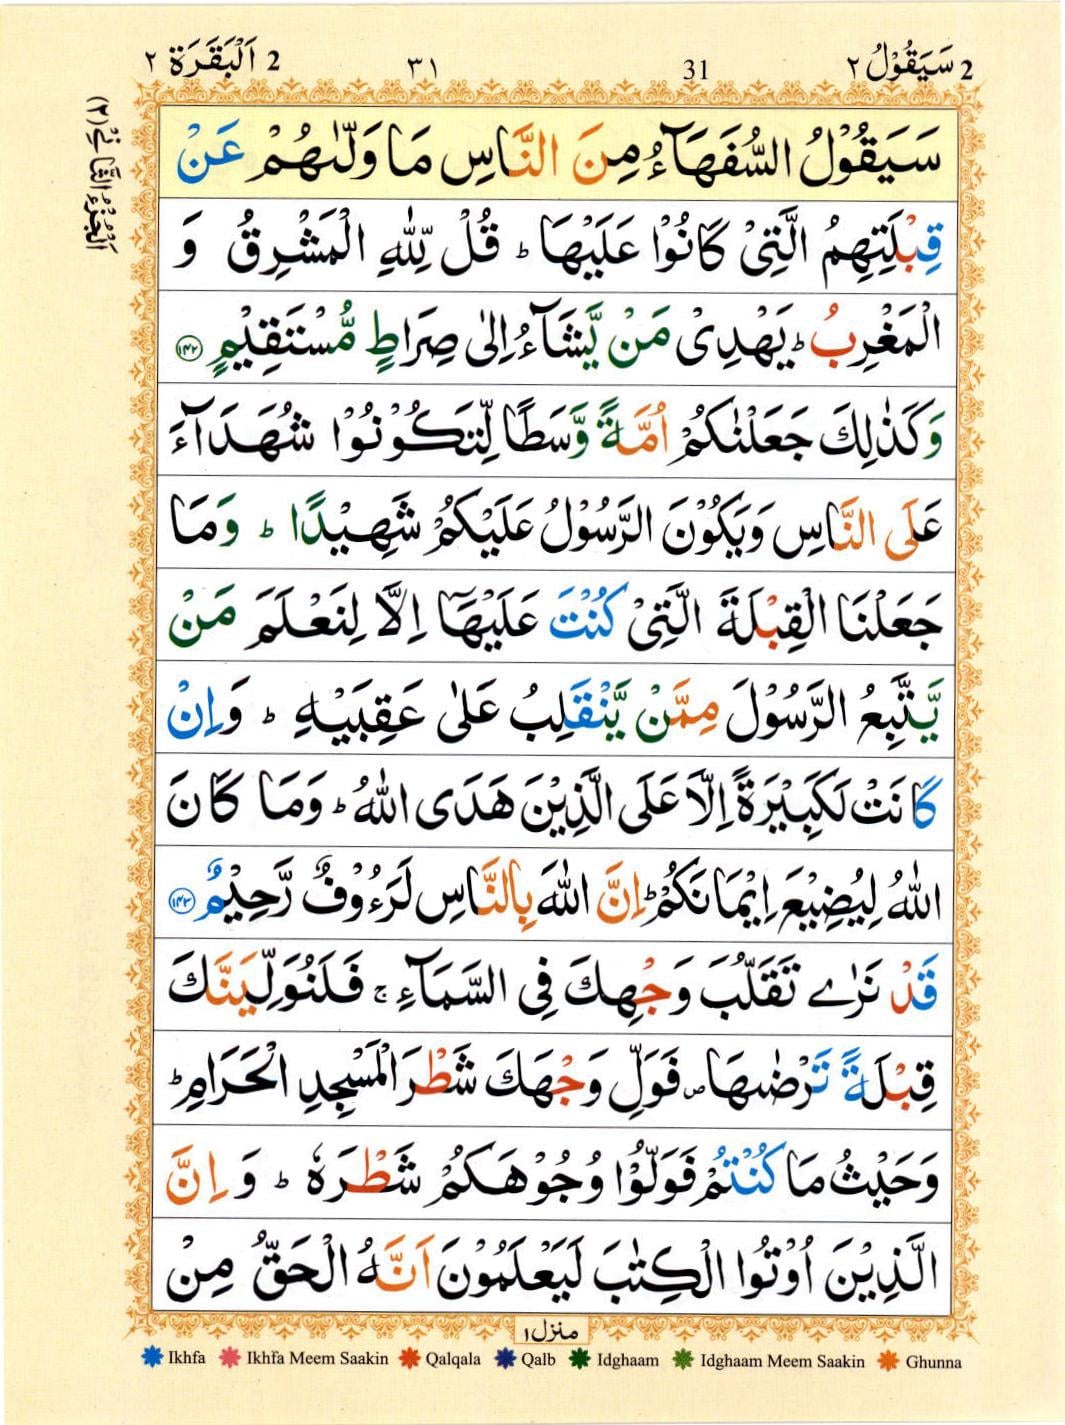 2 سَيَقُوْلُ ٢ 31 ٣١ 2 اَلْبَقَرَة ٢
اَلْجُزْءُ الثَّانِيْ (٢)
سَيَقُوْلُ السُّفَهَآءُ مِنَ النَّاسِ مَا وَلّٰىهُمْ عَنْ
قِبْلَتِهِمُ الَّتِيْ كَانُوْا عَلَيْهَا ؕ قُلْ لِّلّٰهِ الْمَشْرِقُ وَ
الْمَغْرِبُ ؕ يَهْدِيْ مَنْ يَّشَآءُ اِلٰى صِرَاطٍ مُّسْتَقِيْمٍ ﴿١٤٢﴾
وَكَذٰلِكَ جَعَلْنٰكُمْ اُمَّةً وَّسَطًا لِّتَكُوْنُوْا شُهَدَآءَ
عَلَى النَّاسِ وَيَكُوْنَ الرَّسُوْلُ عَلَيْكُمْ شَهِيْدًا ؕ وَمَا
جَعَلْنَا الْقِبْلَةَ الَّتِيْ كُنْتَ عَلَيْهَآ اِلَّا لِنَعْلَمَ مَنْ
يَّتَّبِعُ الرَّسُوْلَ مِمَّنْ يَّنْقَلِبُ عَلٰى عَقِبَيْهِ ؕ وَاِنْ
كَانَتْ لَكَبِيْرَةً اِلَّا عَلَى الَّذِيْنَ هَدَى اللّٰهُ ؕ وَمَا كَانَ
اللّٰهُ لِيُضِيْعَ اِيْمَانَكُمْ ؕ اِنَّ اللّٰهَ بِالنَّاسِ لَرَءُوْفٌ رَّحِيْمٌ ﴿١٤٣﴾
قَدْ نَرٰى تَقَلُّبَ وَجْهِكَ فِي السَّمَآءِ ۚ فَلَنُوَلِّيَنَّكَ
قِبْلَةً تَرْضٰىهَا ۪ فَوَلِّ وَجْهَكَ شَطْرَ الْمَسْجِدِ الْحَرَامِ ؕ
وَحَيْثُ مَا كُنْتُمْ فَوَلُّوْا وُجُوْهَكُمْ شَطْرَهٗ ؕ وَ اِنَّ
الَّذِيْنَ اُوْتُوا الْكِتٰبَ لَيَعْلَمُوْنَ اَنَّهُ الْحَقُّ مِنْ
منزل ١
Ikhfa Ikhfa Meem Saakin Qalqala Qalb Idghaam Idghaam Meem Saakin Ghunna